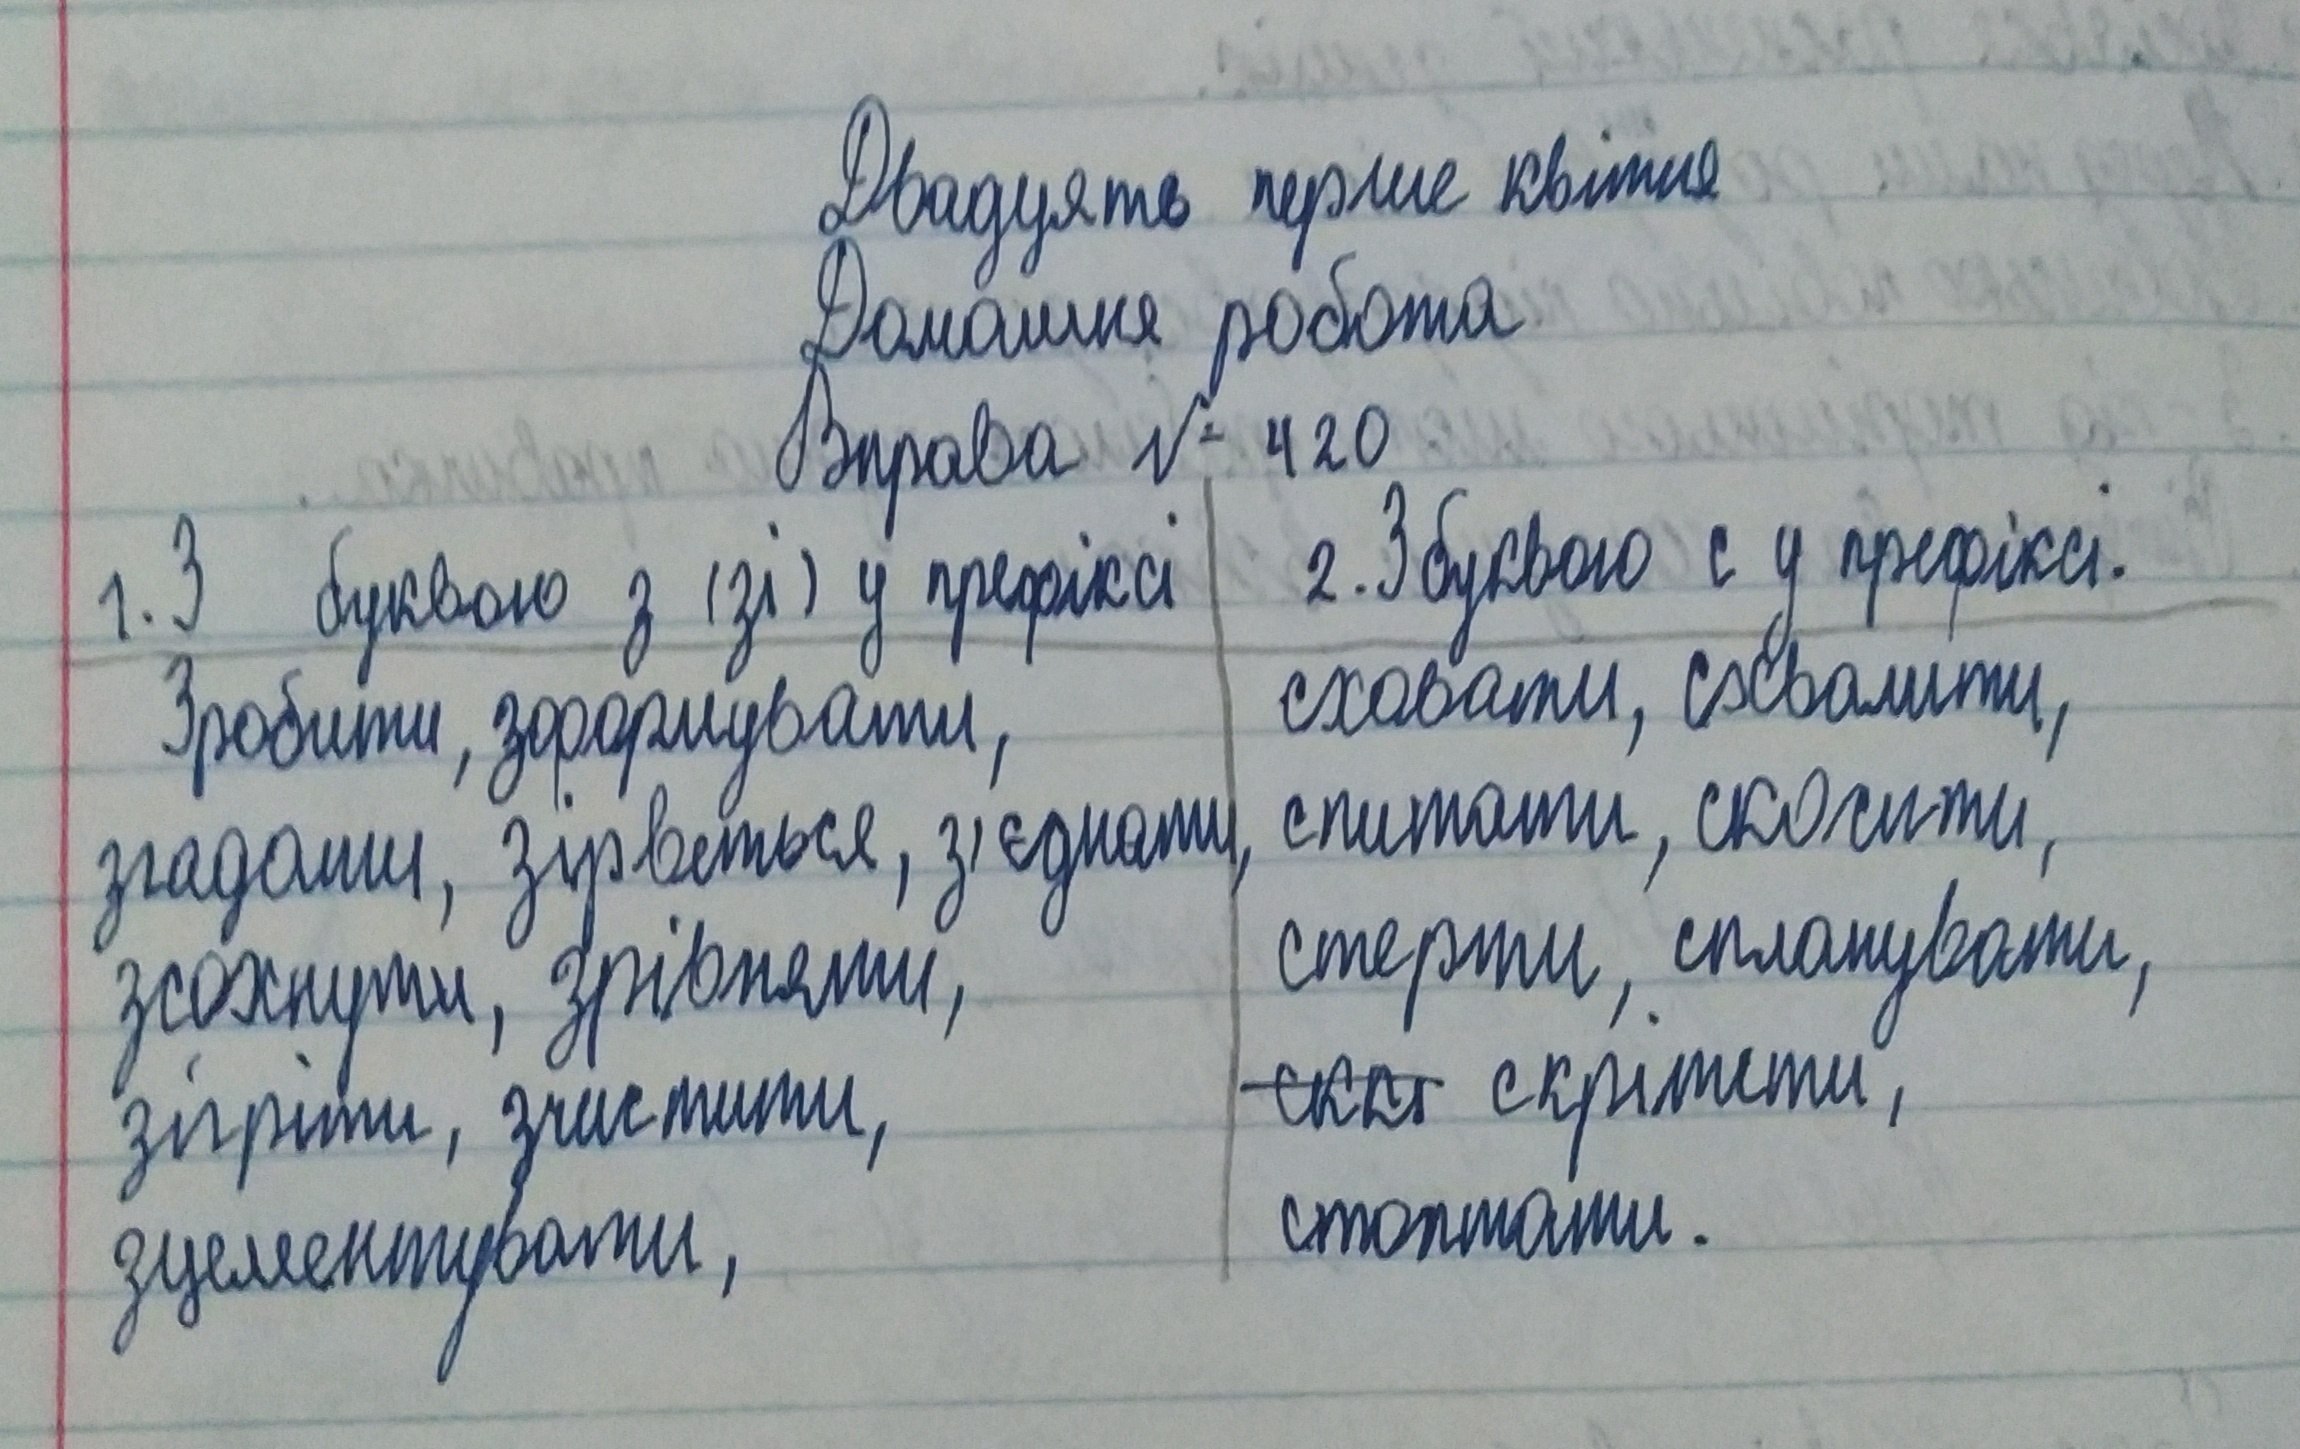 Двадцять перше квітня
Домашня робота
Вправа №420
1. З буквою з (зі) у префіксі
Зробити, зформувати,
згадати, зірветься, з'єднати,
зсохнути, зрівняти,
зігріти, зчистити,
зцементувати,
2. З буквою с у префіксі.
сховати, схвалити,
спитати, скосити,
стерти, спланувати,
скріпети,
стоптати.